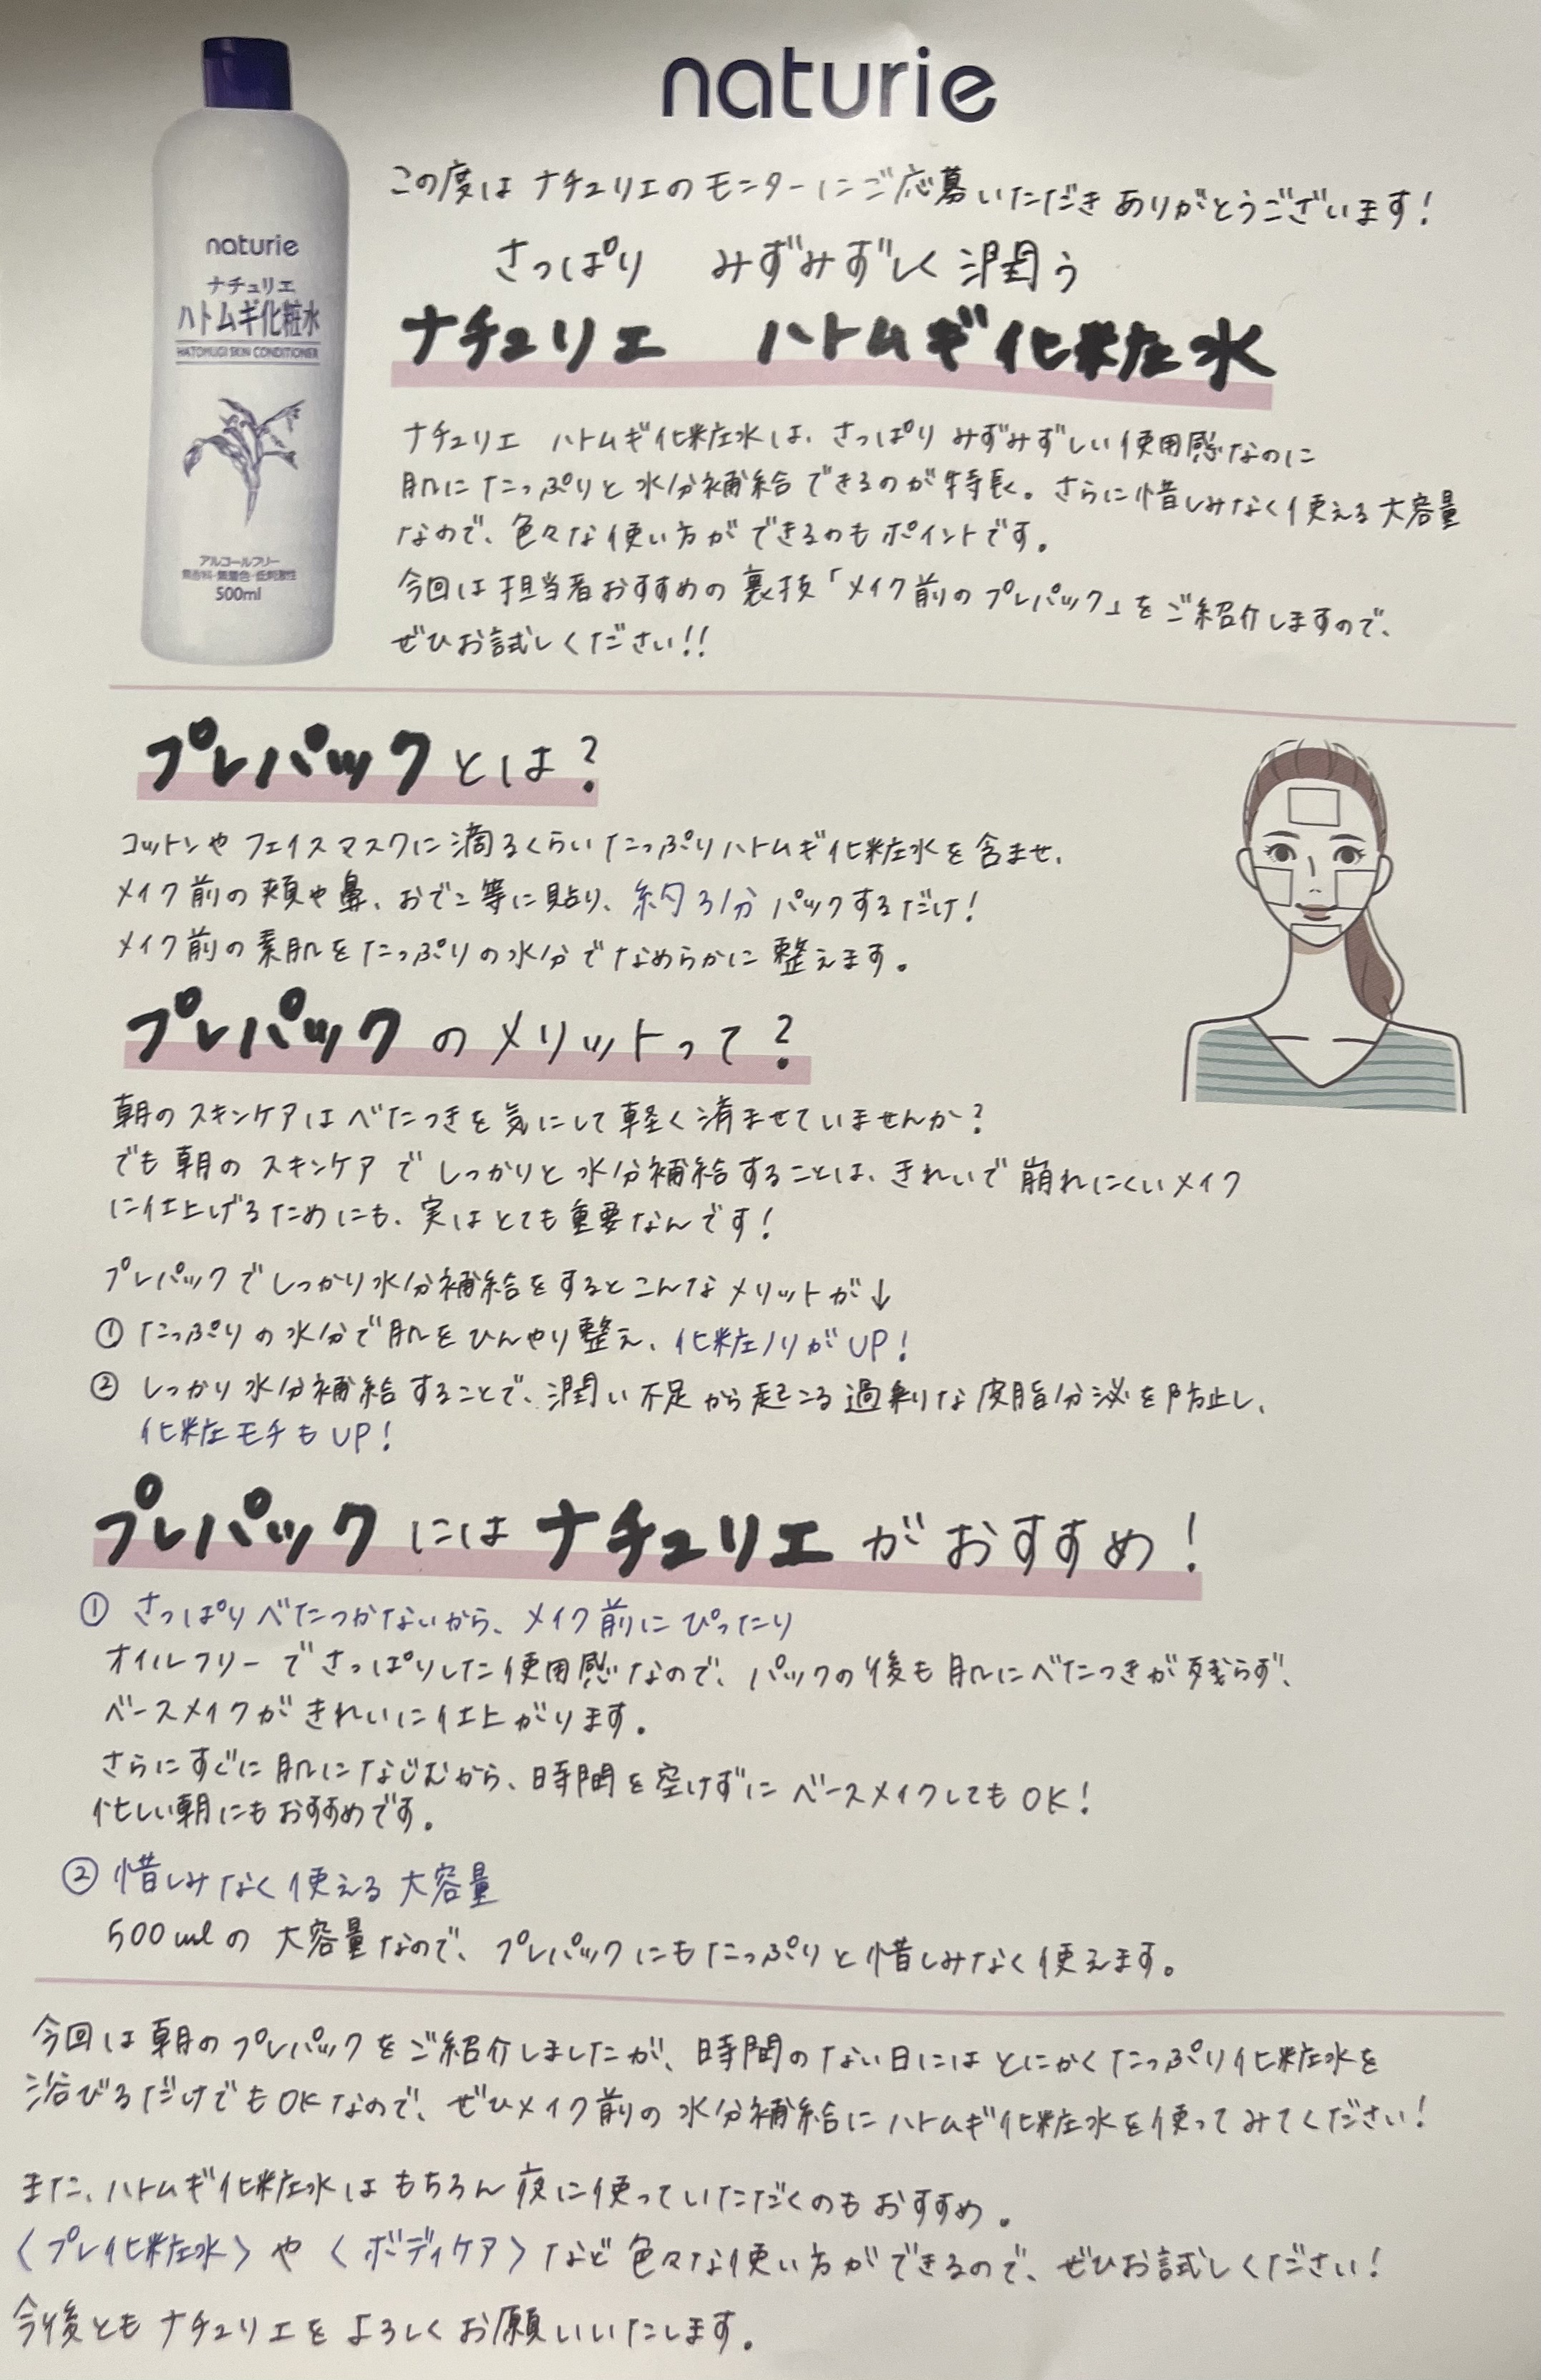 naturie
この度は ナチュリエのモニターにご応募いただき ありがとうございます!
さっぱり みずみずしく潤う
ナチュリエ ハトムギ化粧水
ナチュリエ ハトムギ化粧水は、さっぱり みずみずしい使用感なのに
肌にたっぷりと水分補給できるのが特長。さらに惜しみなく使える大容量
なので、色々な使い方ができるのもポイントです。
今回は担当者おすすめの裏技「メイク前のプレパック」をご紹介しますので、
ぜひお試しください!!
naturie
ナチュリエ
ハトムギ化粧水
HATOMUGI SKIN CONDITIONER
アルコールフリー
無香料・無着色・低刺激性
500ml
プレパックとは?
コットンやフェイスマスクに滴るくらいたっぷりハトムギ化粧水を含ませ、
メイク前の頬や鼻、おでこ等に貼り、約3分パックするだけ!
メイク前の素肌をたっぷりの水分でなめらかに整えます。
プレパックのメリットって?
朝のスキンケアはべたつきを気にして軽く済ませていませんか?
でも朝のスキンケアでしっかりと水分補給することは、きれいで崩れにくいメイク
に仕上げるためにも、実はとても重要なんです!
プレパックでしっかり水分補給をするとこんなメリットが↓
① たっぷりの水分で肌をひんやり整え、化粧ノリがUP!
② しっかり水分補給することで、潤い不足から起こる過剰な皮脂分泌を防止し、
化粧モチもUP!
プレパックにはナチュリエがおすすめ!
① さっぱりべたつかないから、メイク前にぴったり
オイルフリーでさっぱりした使用感なので、パックの後も肌にべたつきが残らず、
ベースメイクがきれいに仕上がります。
さらにすぐに肌になじむから、時間を空けずにベースメイクしてもOK!
忙しい朝にもおすすめです。
② 惜しみなく使える大容量
500mlの大容量なので、プレパックにもたっぷりと惜しみなく使えます。
今回は朝のプレパックをご紹介しましたが、時間のない日にはとにかくたっぷり化粧水を
浴びるだけでもOKなので、ぜひメイク前の水分補給にハトムギ化粧水を使ってみてください!
また、ハトムギ化粧水はもちろん夜に使っていただくのもおすすめ。
〈プレ化粧水〉や〈ボディケア〉など色々な使い方ができるので、ぜひお試しください!
今後ともナチュリエをよろしくお願いいたします。